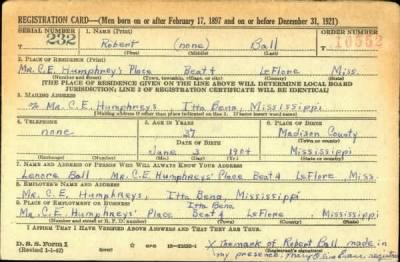 REGISTRATION CARD—(Men born on or after February 17, 1897 and on or before December 31, 1921)
SERIAL NUMBER 1. NAME (Print) ORDER NUMBER
232 Robert (none) Ball 10552
(First) (Middle) (Last)
2. PLACE OF RESIDENCE (Print)
Mr. C.E. Humphrey's Place Beat 4 LeFlore Miss.
(Number and street) (Town, township, village, or city) (County) (State)
[THE PLACE OF RESIDENCE GIVEN ON THE LINE ABOVE WILL DETERMINE LOCAL BOARD
JURISDICTION; LINE 2 OF REGISTRATION CERTIFICATE WILL BE IDENTICAL]
3. MAILING ADDRESS
℅ Mr. C.E. Humphreys Itta Bena, Mississippi
[Mailing address if other than place indicated on line 2. If same insert word same]
4. TELEPHONE 5. AGE IN YEARS 6. PLACE OF BIRTH
none 37 Madison County
DATE OF BIRTH (Town or county)
June 3 1904 Mississippi
(Exchange) (Number) (Mo.) (Day) (Yr.) (State or country)
7. NAME AND ADDRESS OF PERSON WHO WILL ALWAYS KNOW YOUR ADDRESS
Lenore Ball Mr. C.E. Humphreys' Place Beat 4 LeFlore Miss.
8. EMPLOYER'S NAME AND ADDRESS
Mr. C.E. Humphreys, Itta Bena, Mississippi
9. PLACE OF EMPLOYMENT OR BUSINESS Itta Bena
Mr. C.E. Humphreys' Place Beat 4 LeFlore Miss.
(Number and street or R. F. D. number) (Town) (County) (State)
I AFFIRM THAT I HAVE VERIFIED ABOVE ANSWERS AND THAT THEY ARE TRUE.
D. S. S. Form 1 GPO X The mark of Robert Ball made in
(Revised 1-1-42) (Registrant's signature)
my presence. Mary registrar